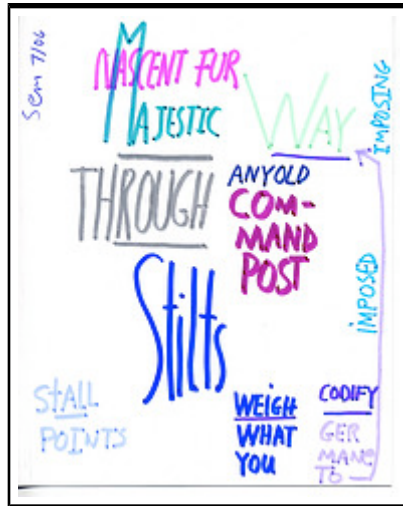 Sem 7/06
NASCENT FUR
MAJESTIC
WAY
IMPOSING
THROUGH
ANYOLD
COM-
MAND
POST
Stilts
IMPOSED
StALL
POINTS
WEIGH
WHAT
YOU
CODIFY
GER
MANE
TO